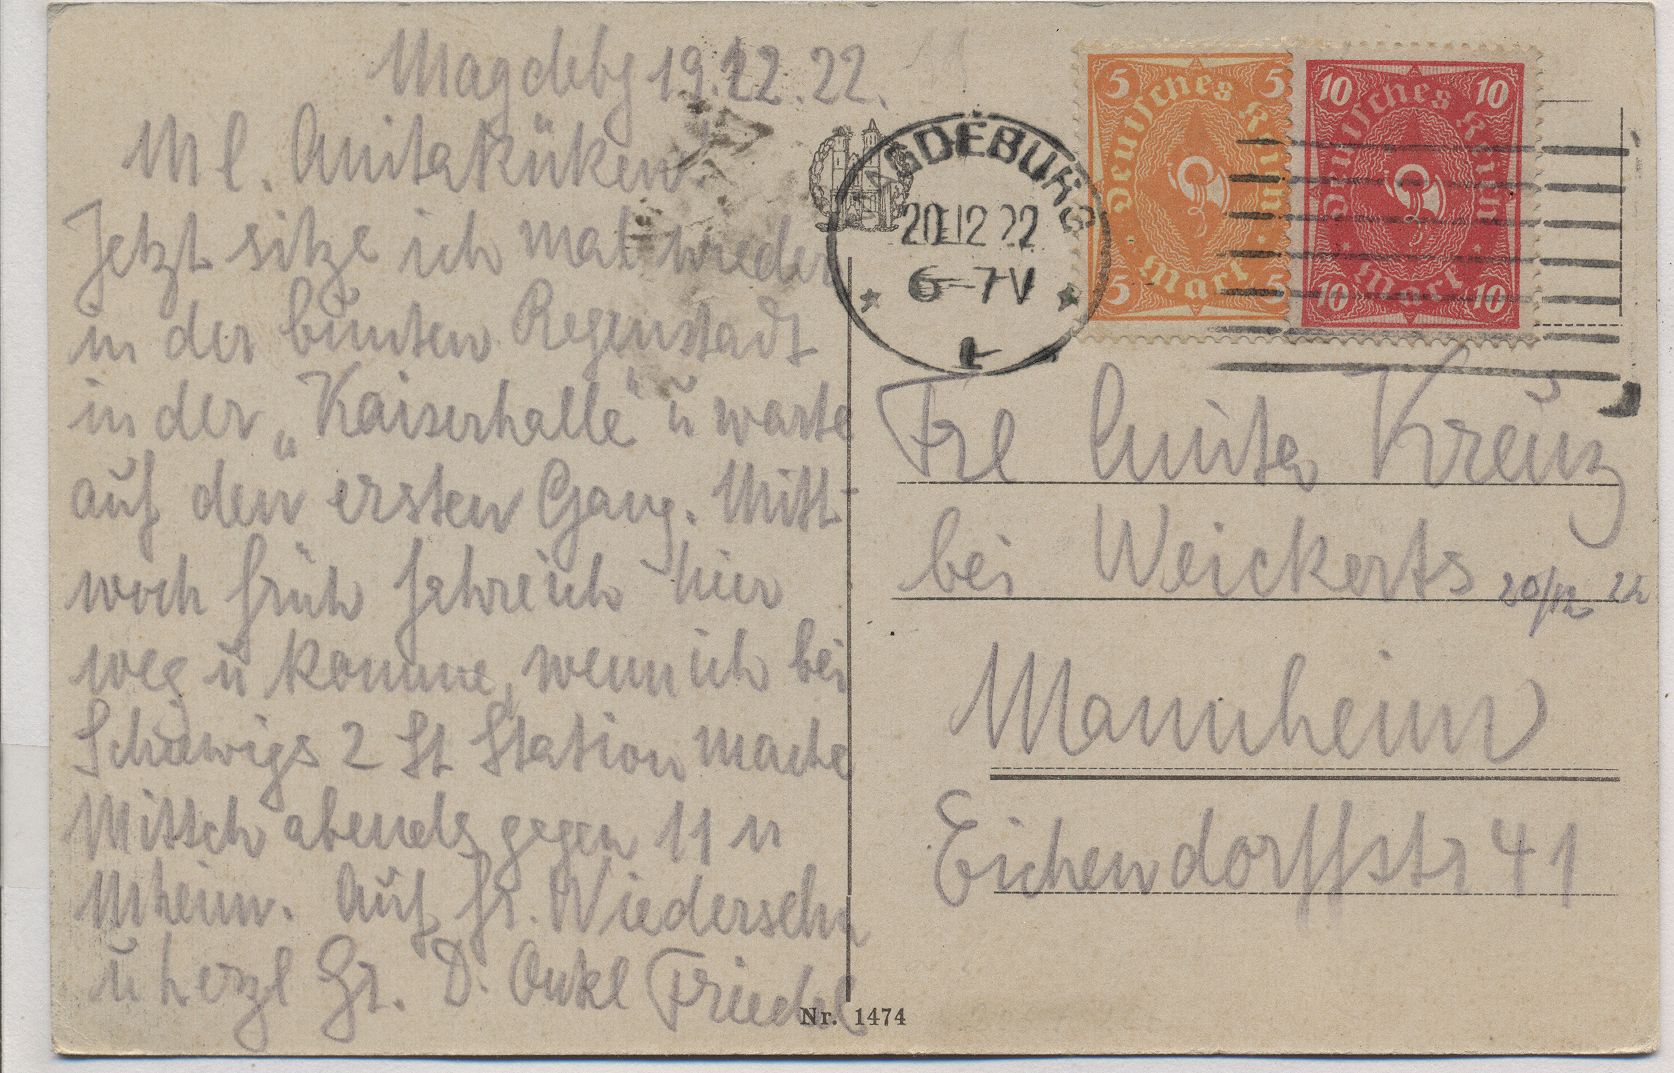 Magdebg 19.12.22.
M l. Anitaküken!
Jetzt sitze ich mal wieder
in der bunten Regenstadt
in der „Kaiserhalle“ u warte
auf den ersten Gang. Mitt-
woch früh fahre ich hier
weg u komme, wenn ich bei
2 St Station mache
Mittwch abends gegen 11 n
Mheim. Auf fr. Wiedersehn
u herzl Gr. D. Onkl Friedel
MAGDEBURG
20.12.22
6-7V
* *
1
5 5
Deutsches Reich
Mark
5 5
10 10
Deutsches Reich
Mark
10 10
Frl Anita Kreuz
bei Weickerts
20/12 22
Mannheim
Eichendorffstr 41
Nr. 1474